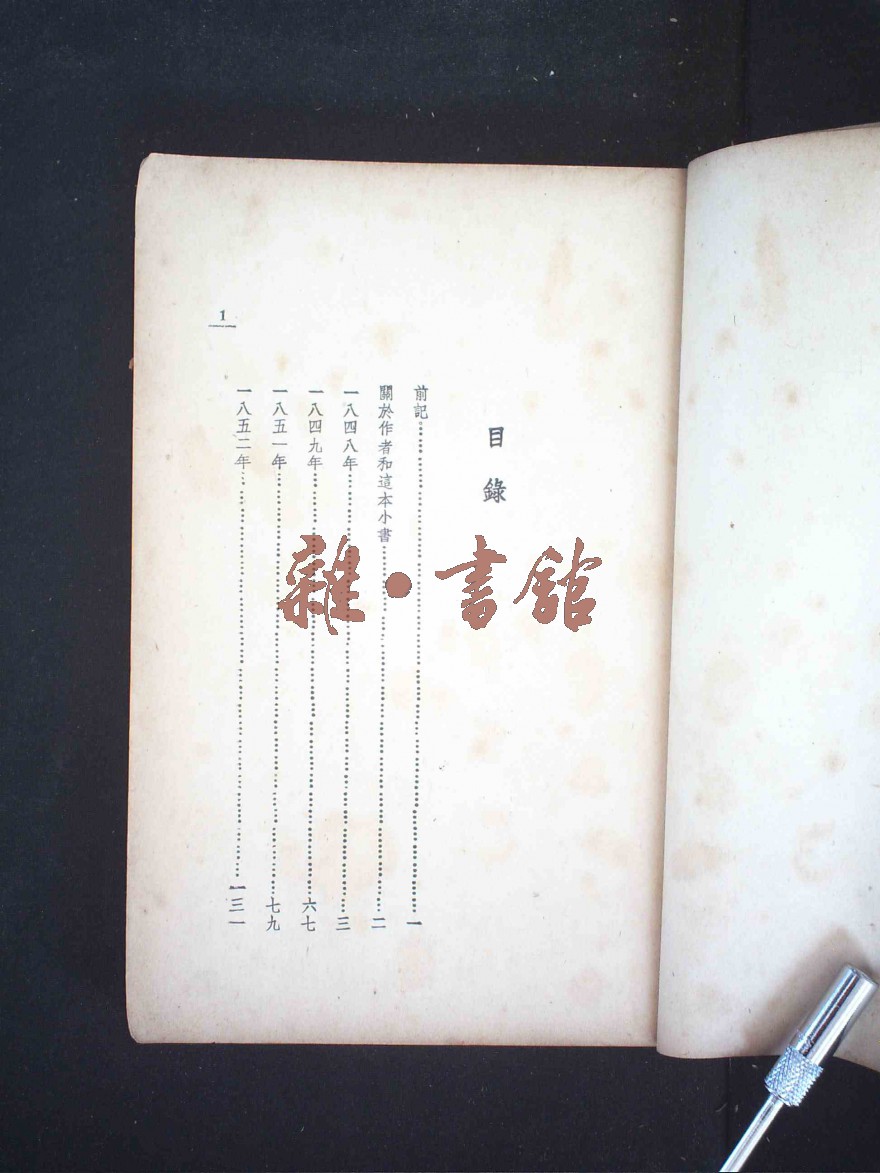 目錄
前記……一
關於作者和這本小書……二
一八四八年……三
一八四九年……六七
一八五一年……七九
一八五二年……一三一
1
雜·書館